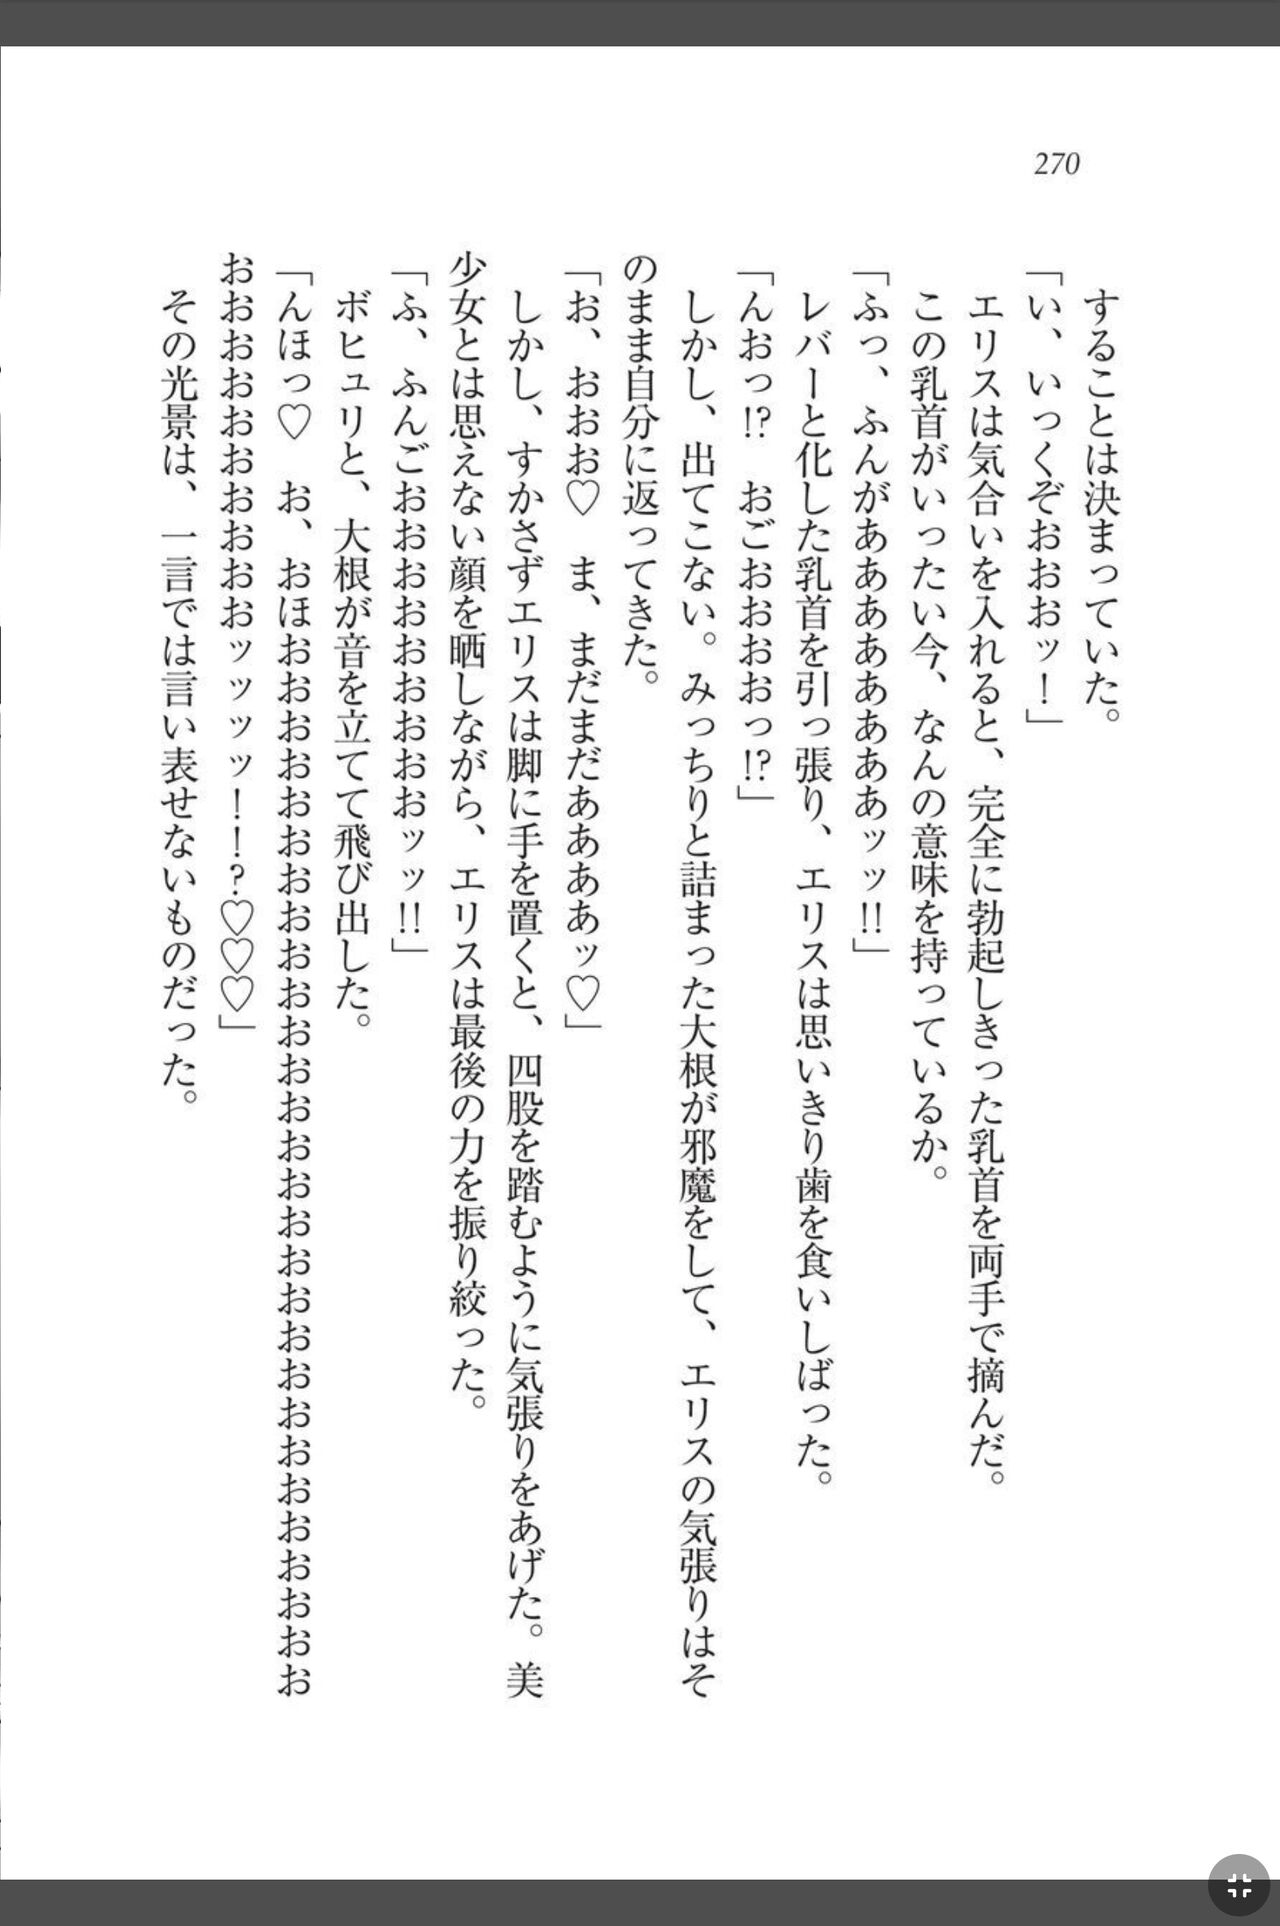 270
することは決まっていた。
「い、いっくぞおおおッ！」
エリスは気合いを入れると、完全に勃起しきった乳首を両手で摘んだ。
この乳首がいったい今、なんの意味を持っているか。
「ふっ、ふんがああああああああッッ!!」
レバーと化した乳首を引っ張り、エリスは思いきり歯を食いしばった。
「んおっ!?　おごおおおおっ!?」
しかし、出てこない。みっちりと詰まった大根が邪魔をして、エリスの気張りはそ
のまま自分に返ってきた。
「お、おおお♡　ま、まだまだああああッ♡」
しかし、すかさずエリスは脚に手を置くと、四股を踏むように気張りをあげた。美
少女とは思えない顔を晒しながら、エリスは最後の力を振り絞った。
「ふ、ふんごおおおおおおおおおッッ!!」
ボヒュリと、大根が音を立てて飛び出した。
「んほっ♡　お、おほおおおおおおおおおおおおおおおおおおおおおおおおおおおお
おおおおおおおおおおッッッッ！！?♡♡♡」
その光景は、一言では言い表せないものだった。